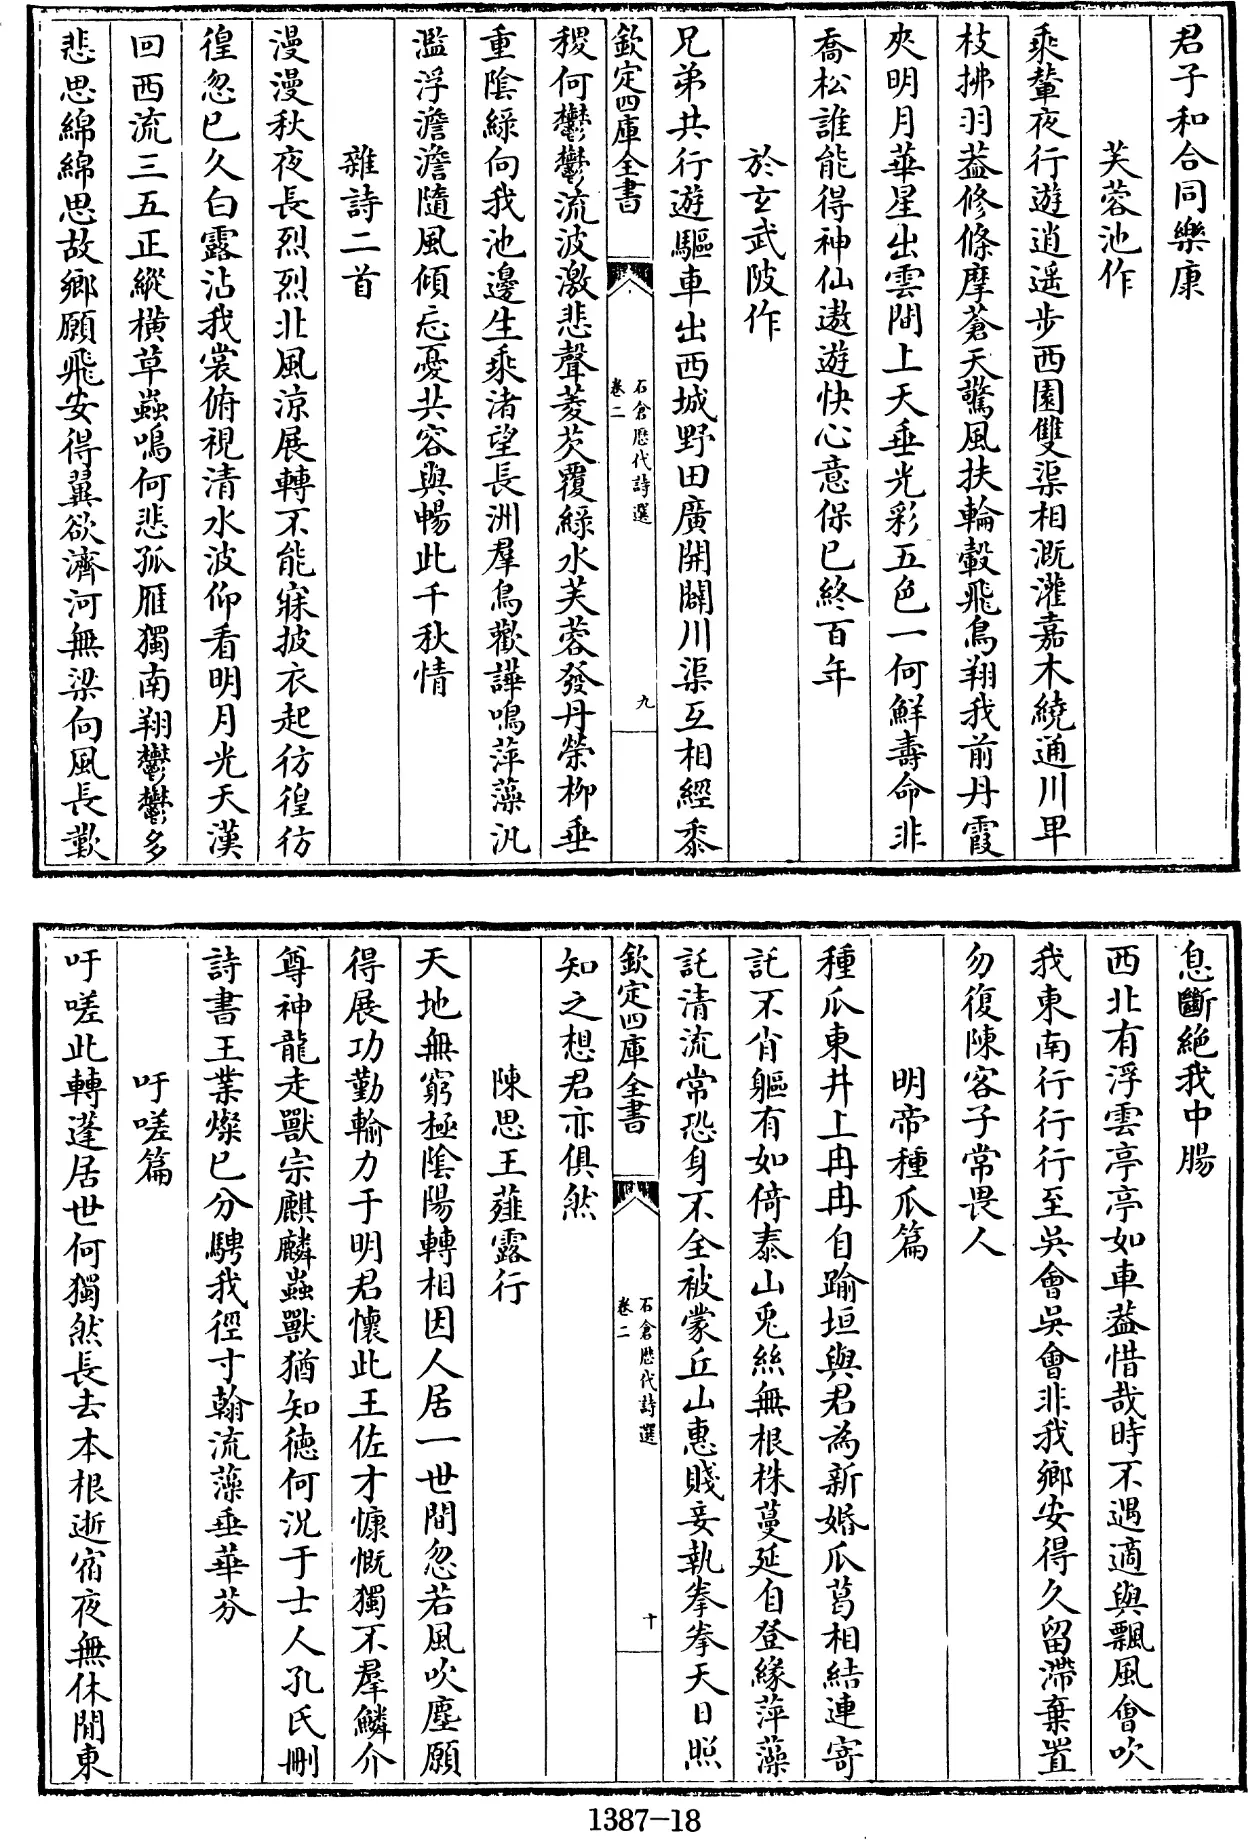 君子和合同樂康
芙蓉池作
乘輦夜行遊逍遥步西園雙渠相溉灌嘉木繞通川甲
枝拂羽蓋修條摩蒼天驚風扶輪轂飛鳥翔我前丹霞
夾明月華星出雲間上天垂光彩五色一何鮮壽命非
喬松誰能得神仙遨遊快心意保已終百年
於玄武陂作
兄弟共行遊驅車出西城野田廣開闢川渠互相經黍
欽定四庫全書
石倉歷代詩選
卷二
九
稷何鬱鬱流波激悲聲菱芡覆綠水芙蓉發丹榮柳垂
重陰綠向我池邊生乘渚望長洲羣鳥歡譁鳴萍藻汎
濫浮澹澹隨風傾忘憂共容與暢此千秋情
雜詩二首
漫漫秋夜長烈烈北風涼展轉不能寐披衣起彷徨彷
徨忽已久白露沾我裳俯視清水波仰看明月光天漢
回西流三五正縱橫草蟲鳴何悲孤雁獨南翔鬱鬱多
悲思綿綿思故鄉願飛安得翼欲濟河無梁向風長歎
息斷絕我中腸
西北有浮雲亭亭如車蓋惜哉時不遇適與飄風會吹
我東南行行行至吳會吳會非我鄉安得久留滯棄置
勿復陳客子常畏人
明帝種瓜篇
種瓜東井上冉冉自踰垣與君為新婚瓜葛相結連寄
託不肖軀有如倚泰山兎絲無根株蔓延自登緣萍藻
託清流常恐身不全被蒙丘山惠賤妾執拳拳天日照
欽定四庫全書
石倉歷代詩選
卷二
十
知之想君亦俱然
陳思王薤露行
天地無窮極陰陽轉相因人居一世間忽若風吹塵願
得展功勤輸力于明君懷此王佐才慷慨獨不羣鱗介
尊神龍走獸宗麒麟蟲獸猶知德何況于士人孔氏刪
詩書王業燦已分騁我徑寸翰流藻垂華芬
吁嗟篇
吁嗟此轉蓬居世何獨然長去本根逝宿夜無休閒東
1387-18